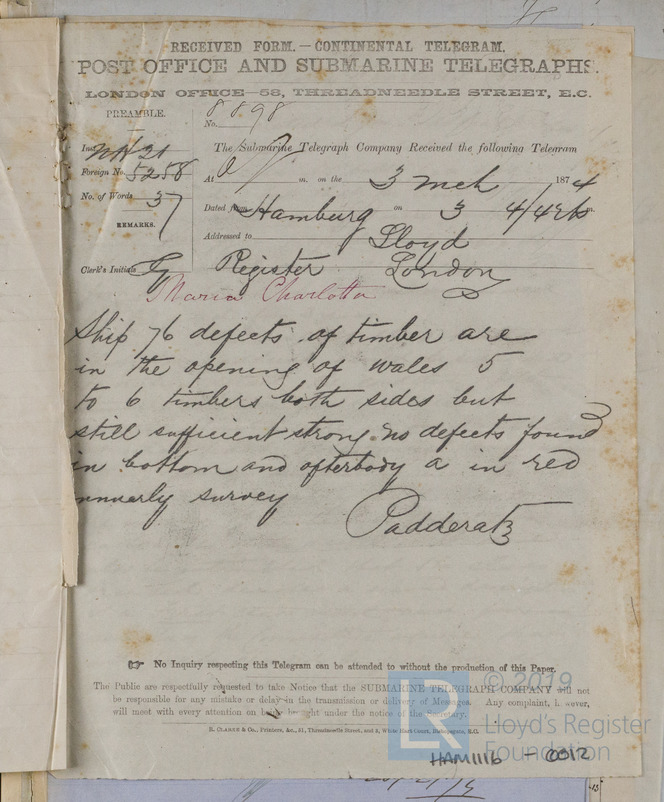 RECEIVED FORM.—CONTINENTAL TELEGRAM.
POST OFFICE AND SUBMARINE TELEGRAPHS.
LONDON OFFICE—58, THREADNEEDLE STREET, E.C.
PREAMBLE.
No. 8898
Inst. 21
The Submarine Telegraph Company Received the following Telegram
Foreign No. 5258
At m. on the 3 Mch 1874
No. of Words 37
Dated from Hamburg on 3 4/4 m.
REMARKS.
Addressed to Lloyd
Clerk's Initials
Register London
Maria Charlotta
Ship 76 defects of timber are
in the opening of wales 5
to 6 timbers both sides but
still sufficient strong no defects found
in bottom and afterbody a in red
survey
Padderatz
No Inquiry respecting this Telegram can be attended to without the production of this Paper.
The Public are respectfully requested to take Notice that the SUBMARINE TELEGRAPH COMPANY will not
be responsible for any mistake or delay in the transmission or delivery of Messages. Any complaint, however,
will meet with every attention on being brought under the notice of the Secretary.
R. CLARKE & Co., Printers, &c., 81, Threadneedle Street, and 3, White Hart Court, Bishopsgate, E.C.
LR
© 2019
Lloyd's Register
Foundation
HAM1116 - 0012